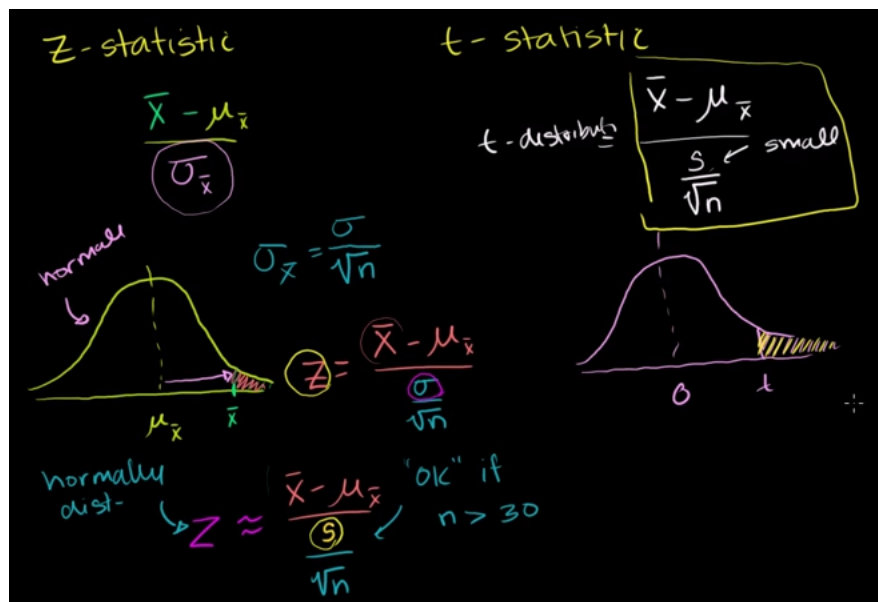 Z-statistic
x̄ - μx̄
σx̄
normal
σx̄ = σ/√n
μx̄
x̄
Z = (x̄ - μx̄)/(σ/√n)
normally
dist-
Z ≈ (x̄ - μx̄)/(s/√n)
"OK" if
n > 30
t-statistic
t-distribution
x̄ - μx̄
s/√n
small
0
t